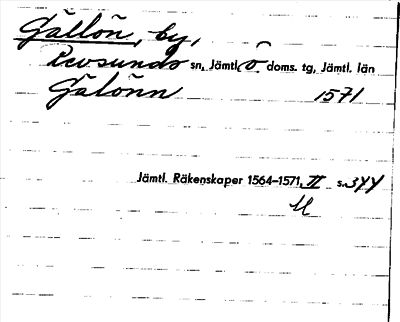 Gällön, by,
Revsunds sn, Jämtl. ö. doms. tg, Jämtl. län
Gälönn 1571
Jämtl. Räkenskaper 1564–1571, II s. 344